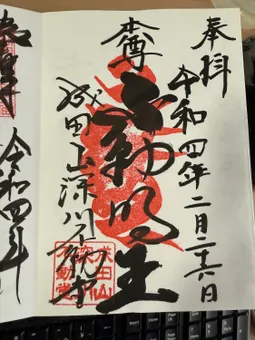 奉拝
令和四年二月二十六日
本尊
不動明王
成田山深川不動堂
令和四年